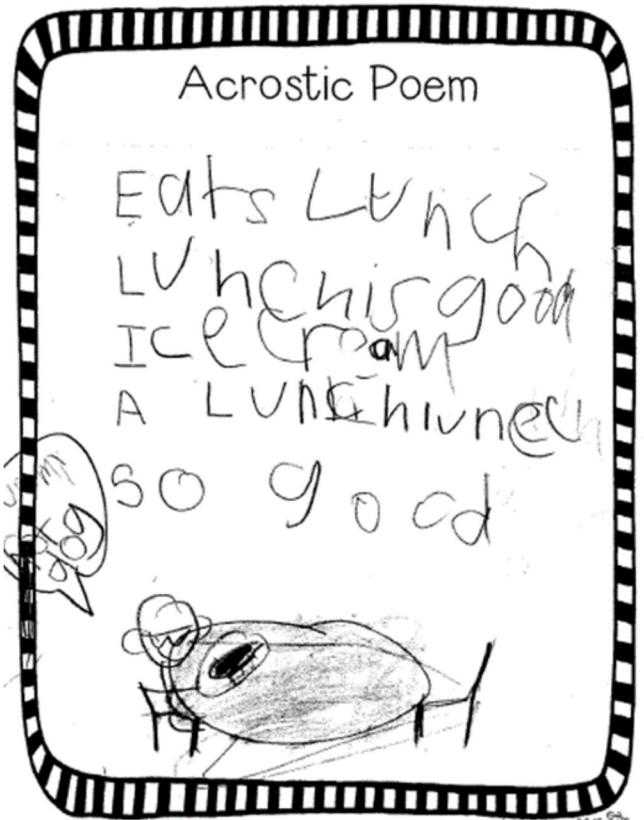 Acrostic Poem
Eats Lunch
Lunch is good
Ice cream
A Lunch
So good